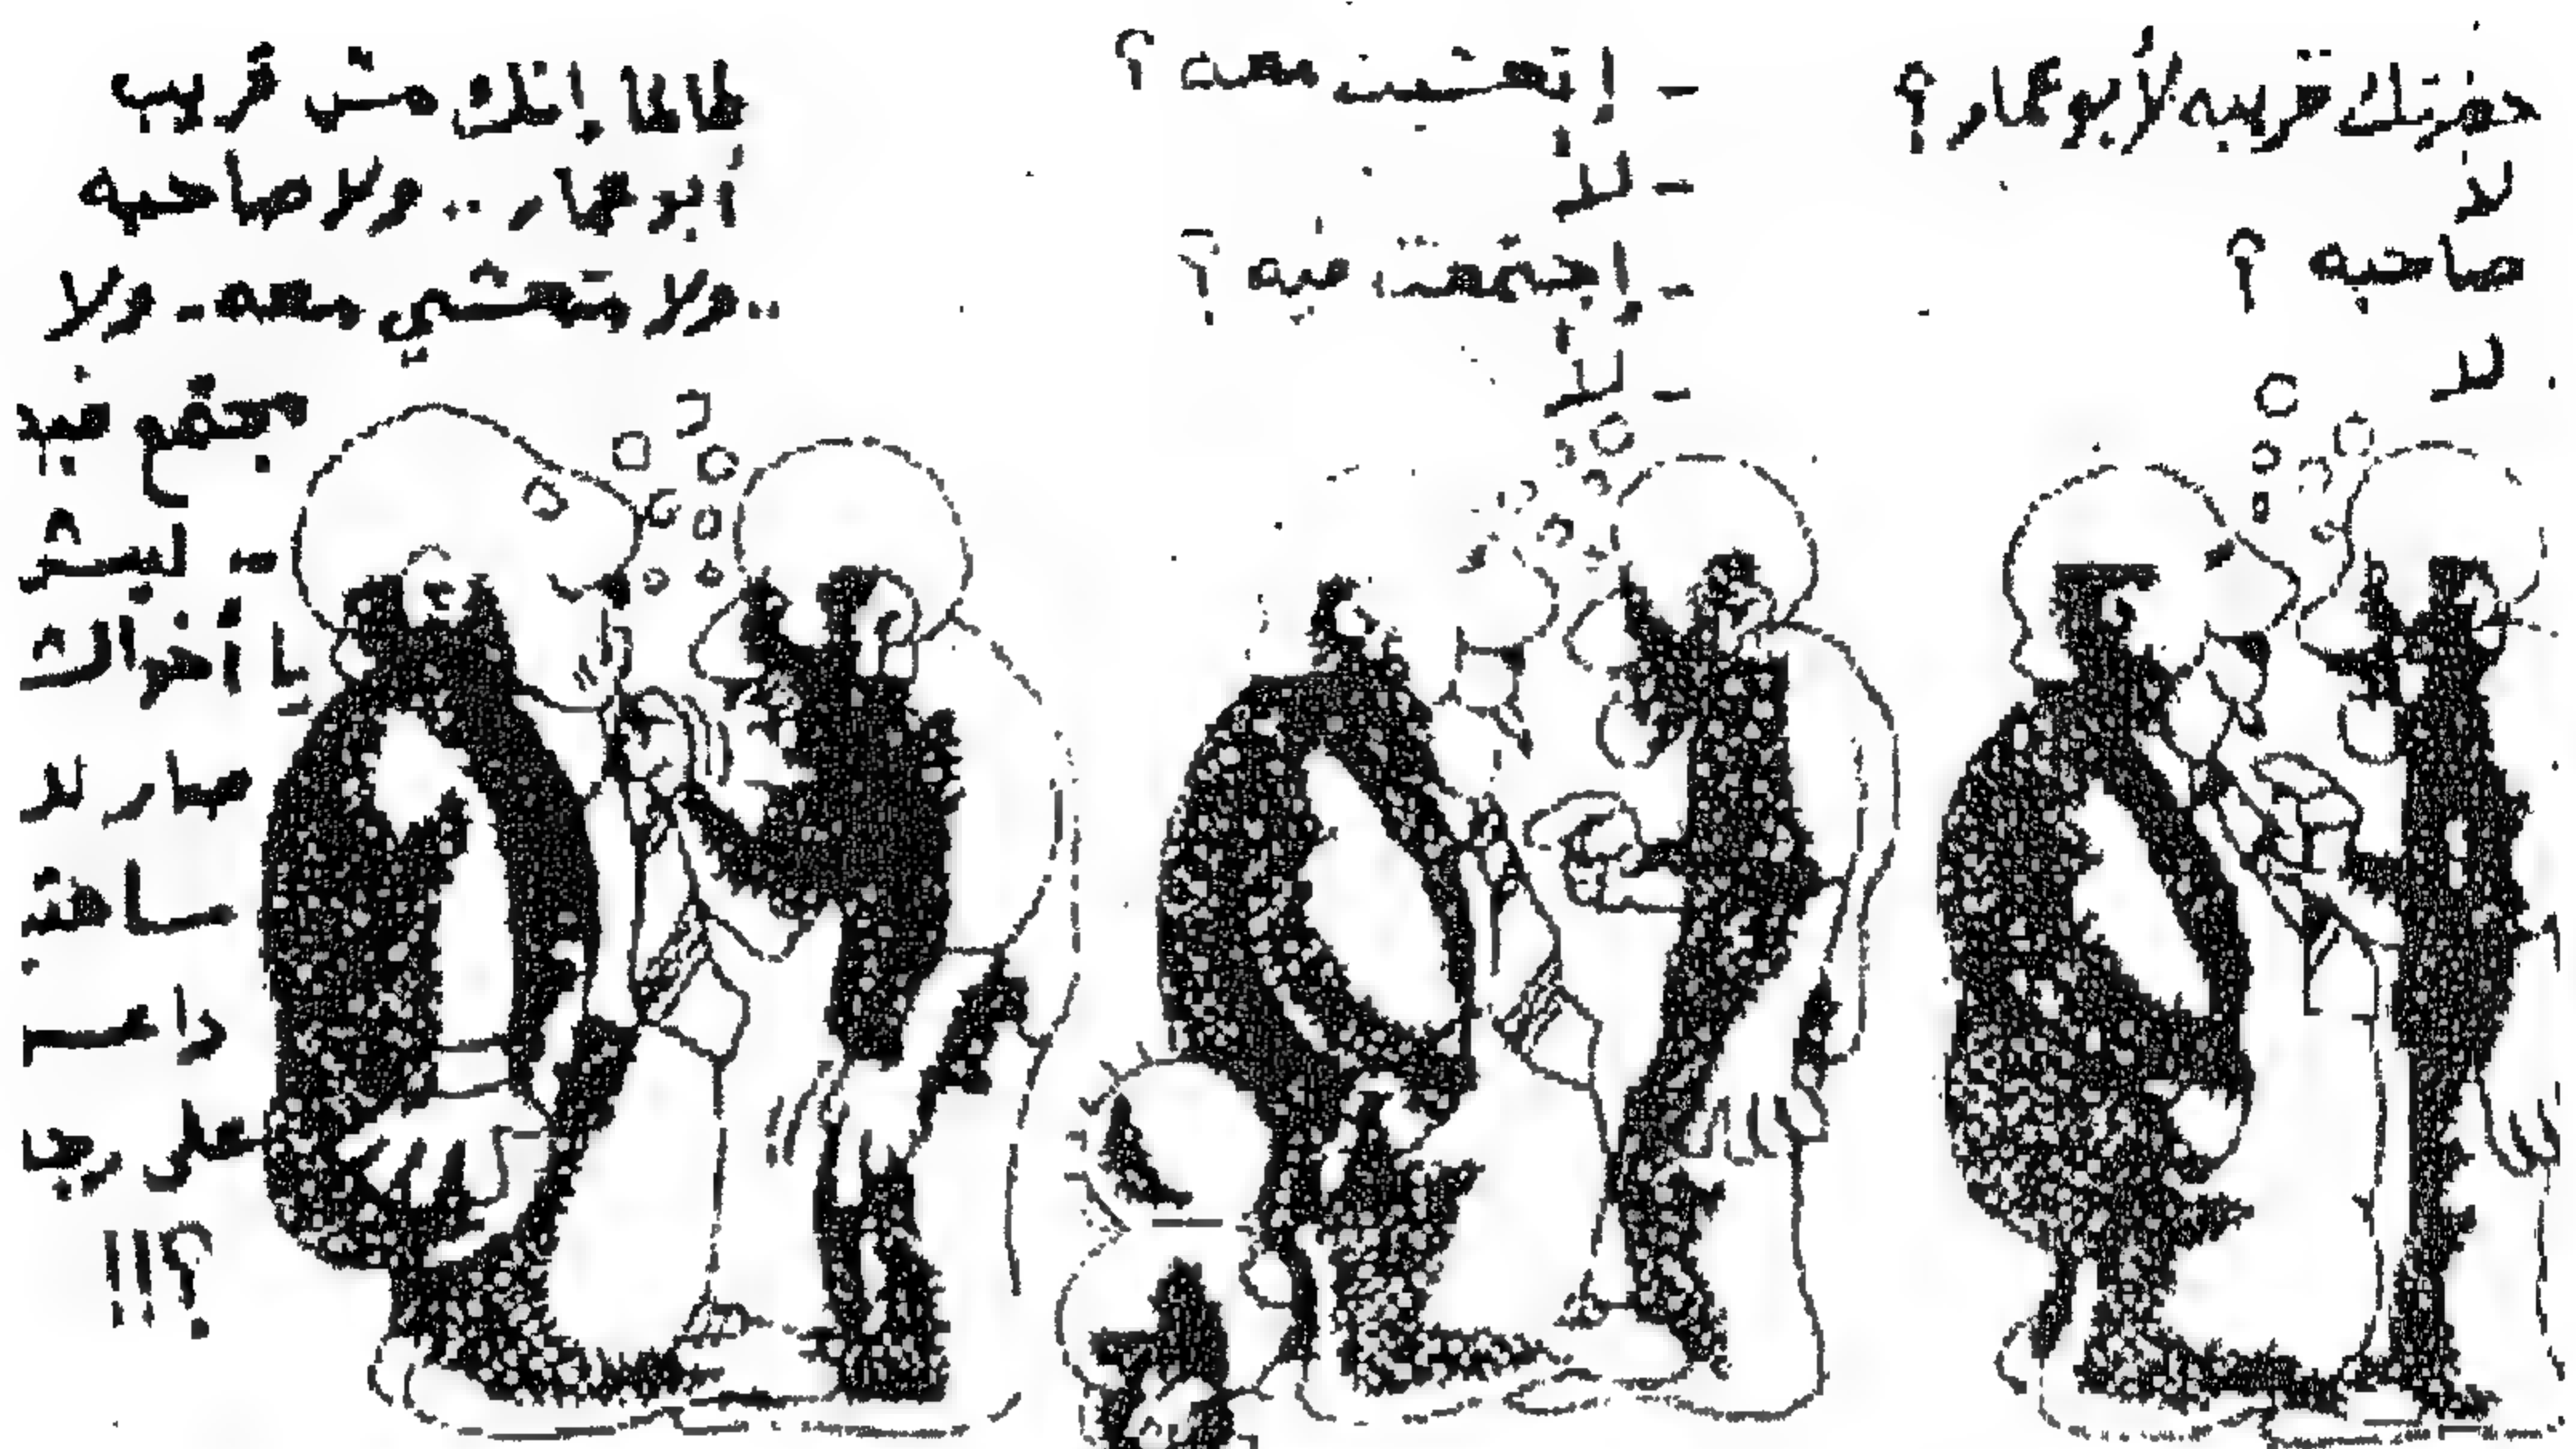 حضرتك قريبه لأبو عمار؟
لا
صاحبه ؟
لا
- إتعشيت معه ؟
- لا
- إجتمعت فيه ؟
- لا
طالما إنك مش قريب
أبو عمار .. ولا صاحبه
.. ولا متعشي معه - ولا
مجتمع فيه
- ليش
يا أخوال
صار لك
ساعة
داعس
على
؟!!!